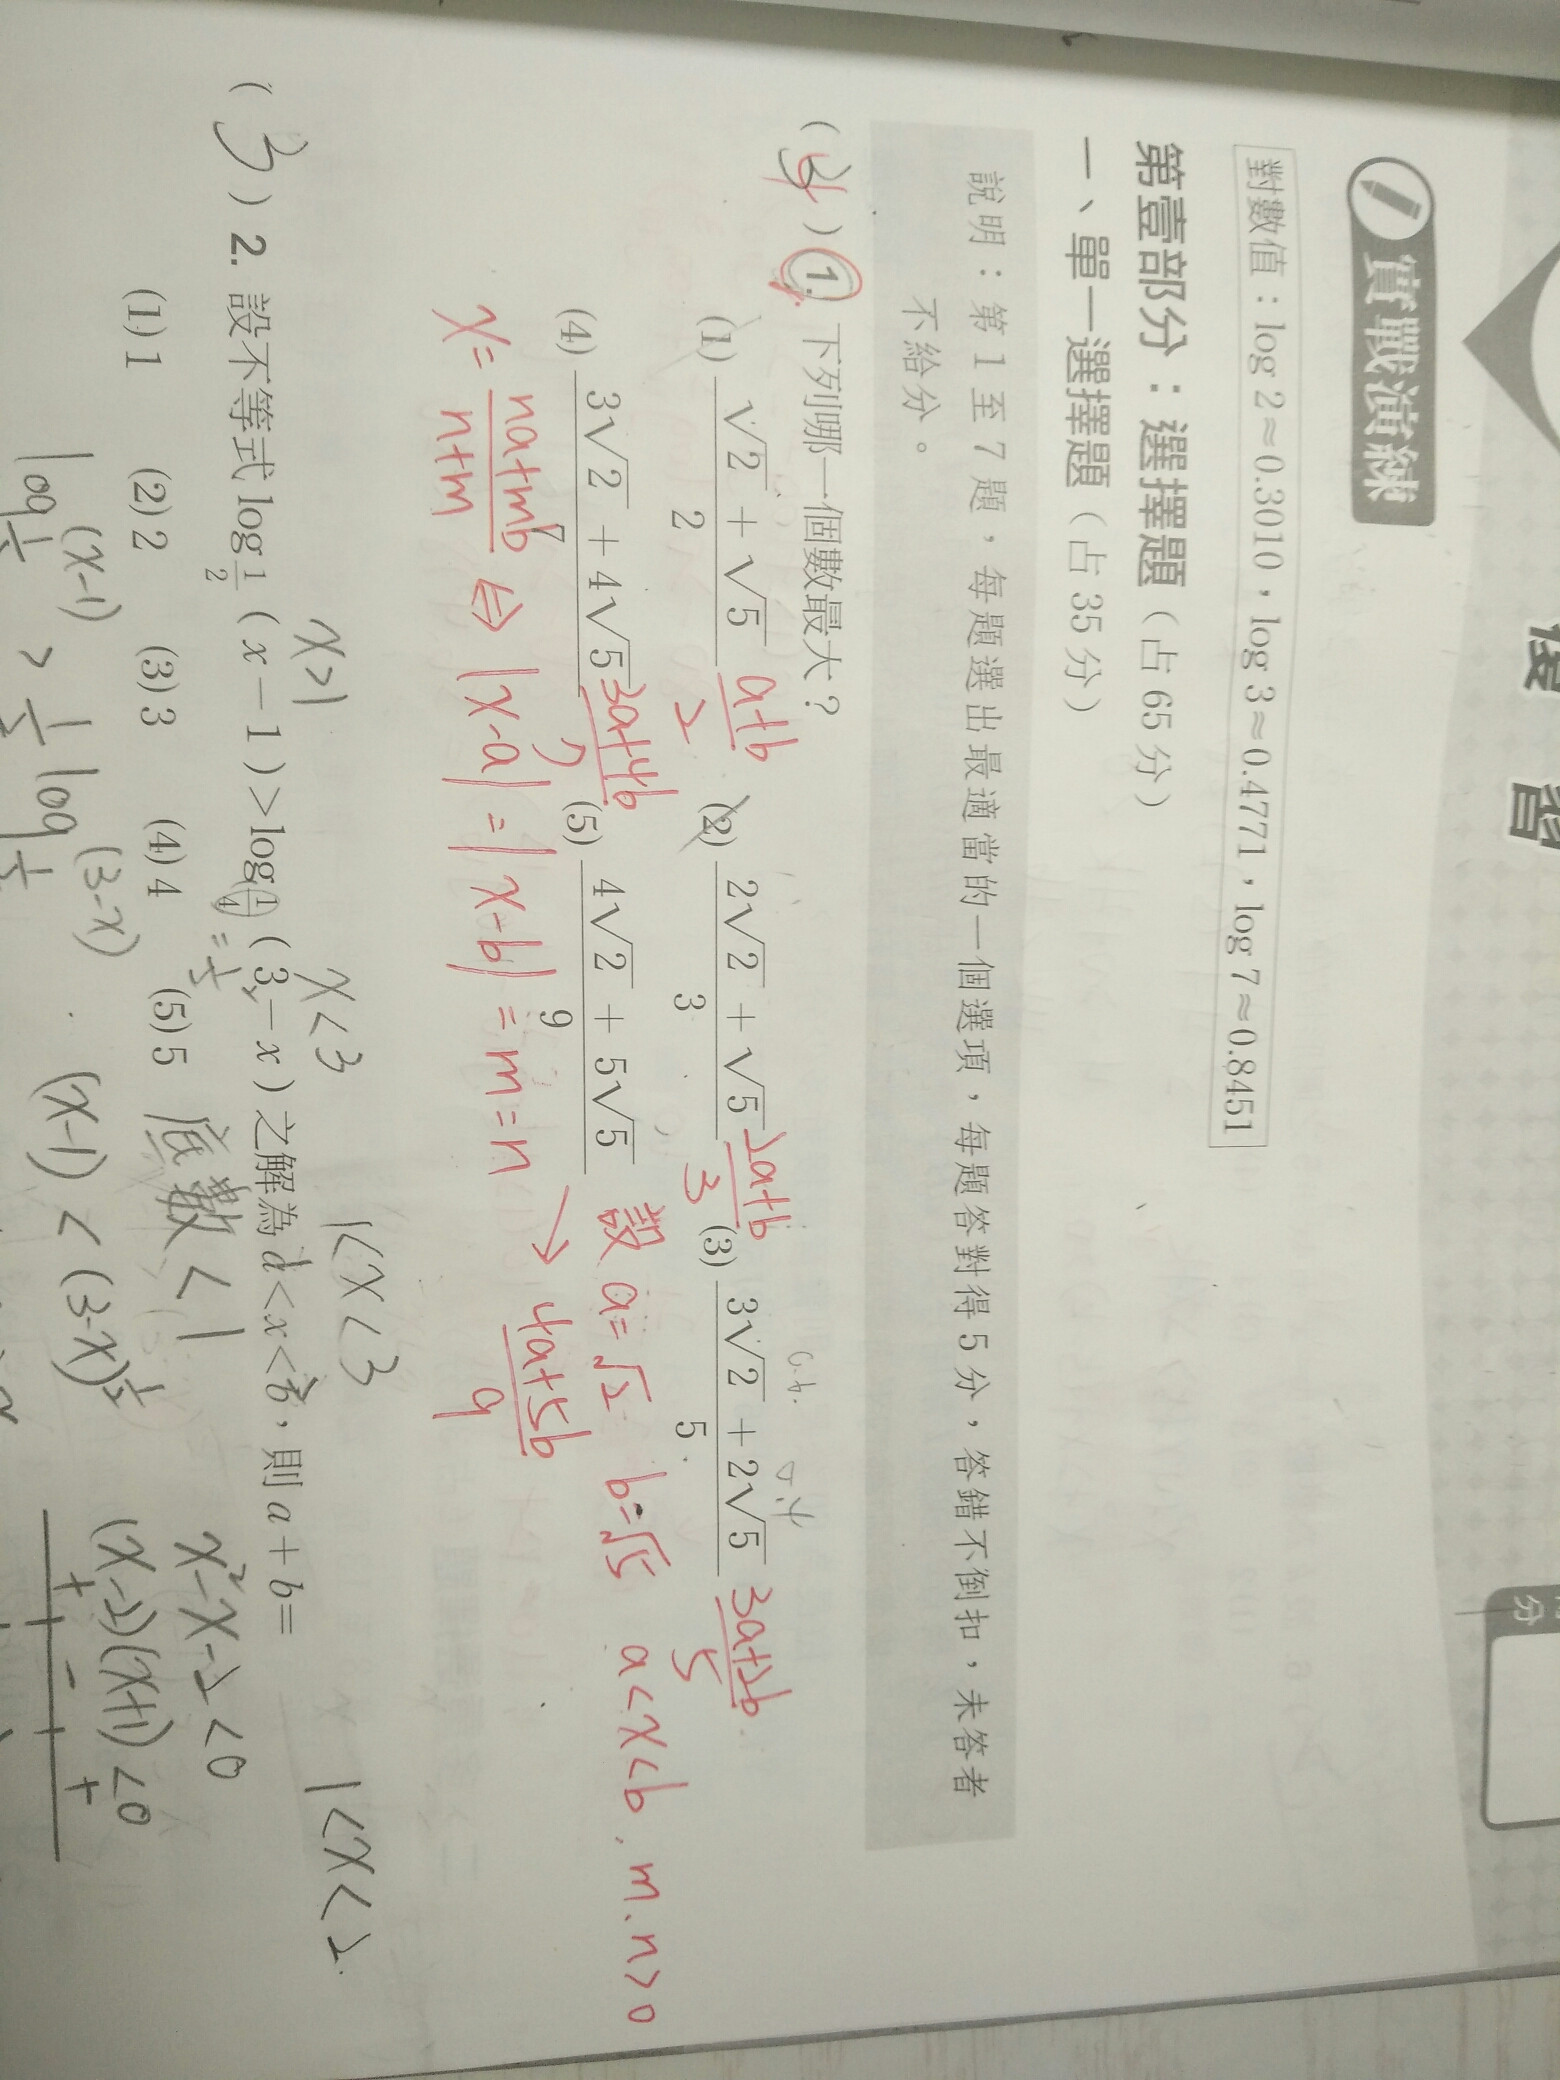 複習
實戰演練
分
對數值：log 2≈0.3010，log 3≈0.4771，log 7≈0.8451
第壹部分：選擇題（占 65 分）
一、單一選擇題（占 35 分）
說明：第 1 至 7 題，每題選出最適當的一個選項，每題答對得 5 分，答錯不倒扣，未答者
不給分。
( 4 ) 1. 下列哪一個數最大？
0.6. 0.4
(1) (√2 + √5)/2 (a+b)/2 (2) (2√2 + √5)/3 (2a+b)/3 (3) (3√2 + 2√5)/5 (3a+2b)/5
(4) (3√2 + 4√5)/7 (3a+4b)/7 (5) (4√2 + 5√5)/9 設 a=√2 b=√5 a<x<b, m、n>0
→ (4a+5b)/9
x= (na+mb)/(n+m) ⇔ |x-a| = |x-b| = m = n
x>1 x<3 1<x<3 1<x<2
( 3 ) 2. 設不等式 log_{1/2} ( x − 1 ) > log_{1/4} ( 3 − x ) 之解為 a < x < b，則 a + b =
(1) 1 (2) 2 (3) 3 (4) 4 (5) 5 底數<1
x²-x-2<0
log_{1/2} (x-1) > 1/2 log_{1/2} (3-x) (x-1) < (3-x)^{1/2} (x-2)(x+1)<0
+ - +